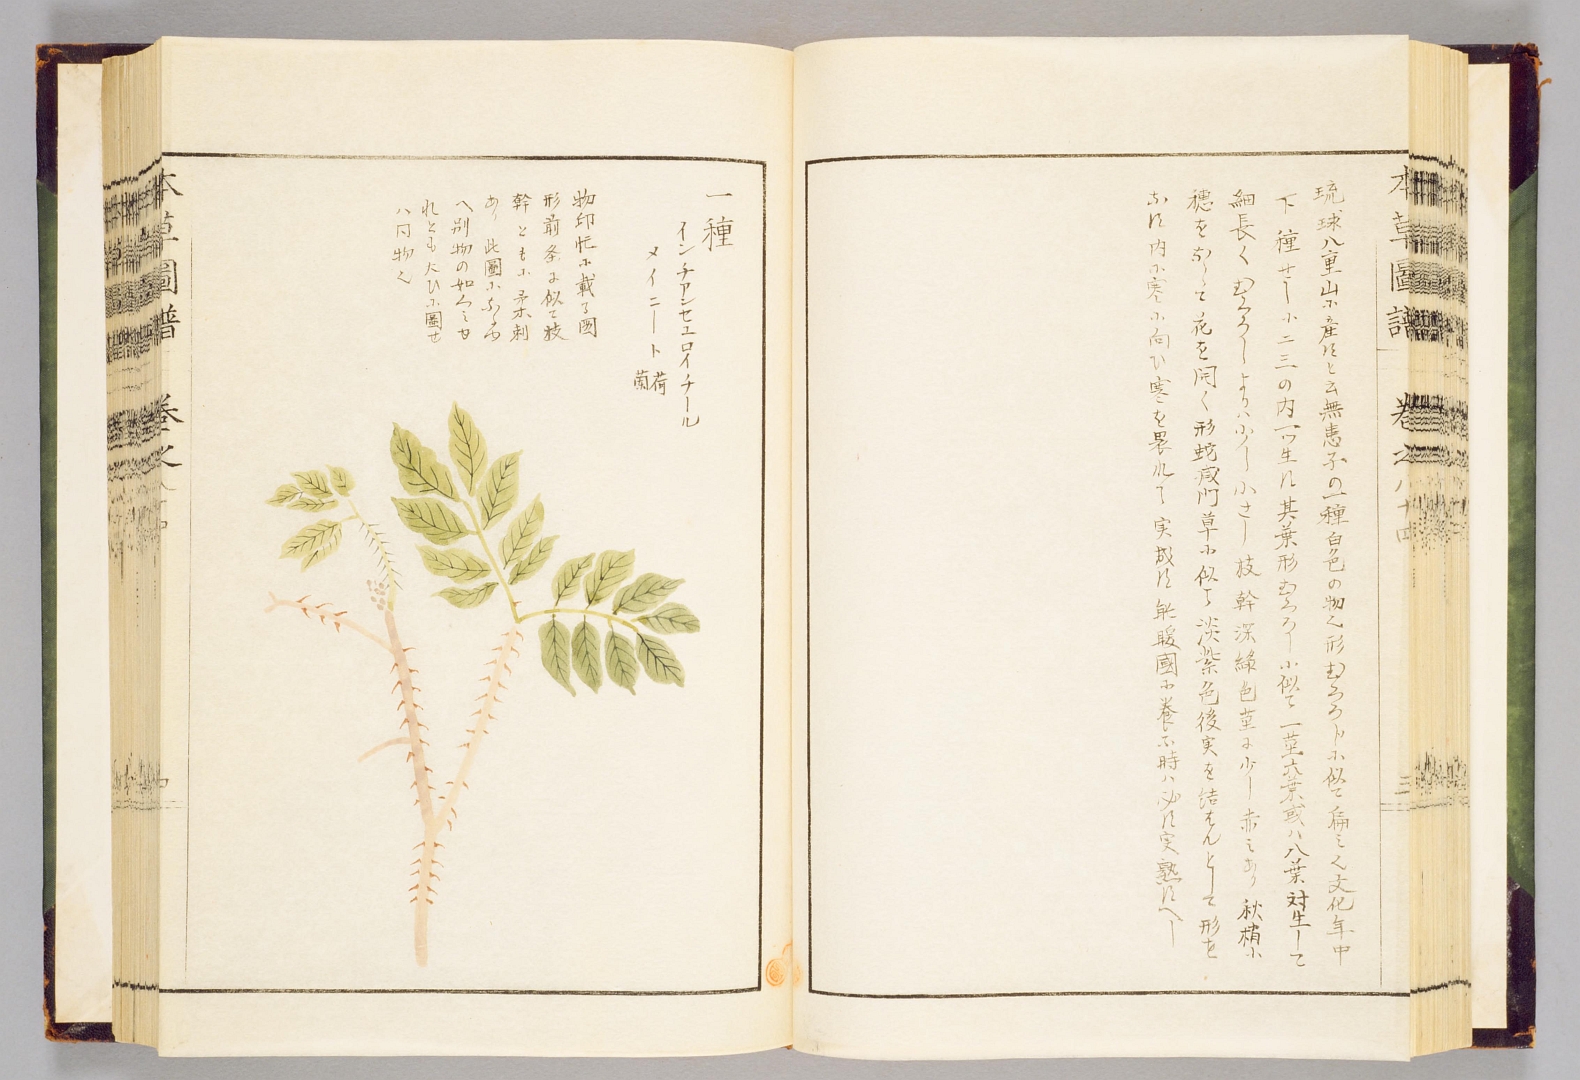 本草圖譜 卷之八十四
三
琉球八重山ニ産すと云無患子の一種白色の物也形むくろじに似て扁之也文化年中
下種せしに二三の内一ツ生す其葉形むくろじに似て一茎六葉或ハ八葉対生して
細長くむくろじよりハ少し小さし枝幹深緑色茎に少し赤ミあり秋梢に
穂をなして花を開く形蛇滅門草に似て淡紫色後実を結はんとして形を
なす内に寒に向ひ寒を畏れて実成す 暖國に養ふ時ハ必す実熟すへし
一種
インチアンセエロイチール
メイニート 蘭荷
物印忙に載る圖
形前条に似て枝
幹ともに柔刺
あり此圖に
へ別物の如くミせ
れとも大ひに圖せ
ハ同物也
本草圖譜 卷之